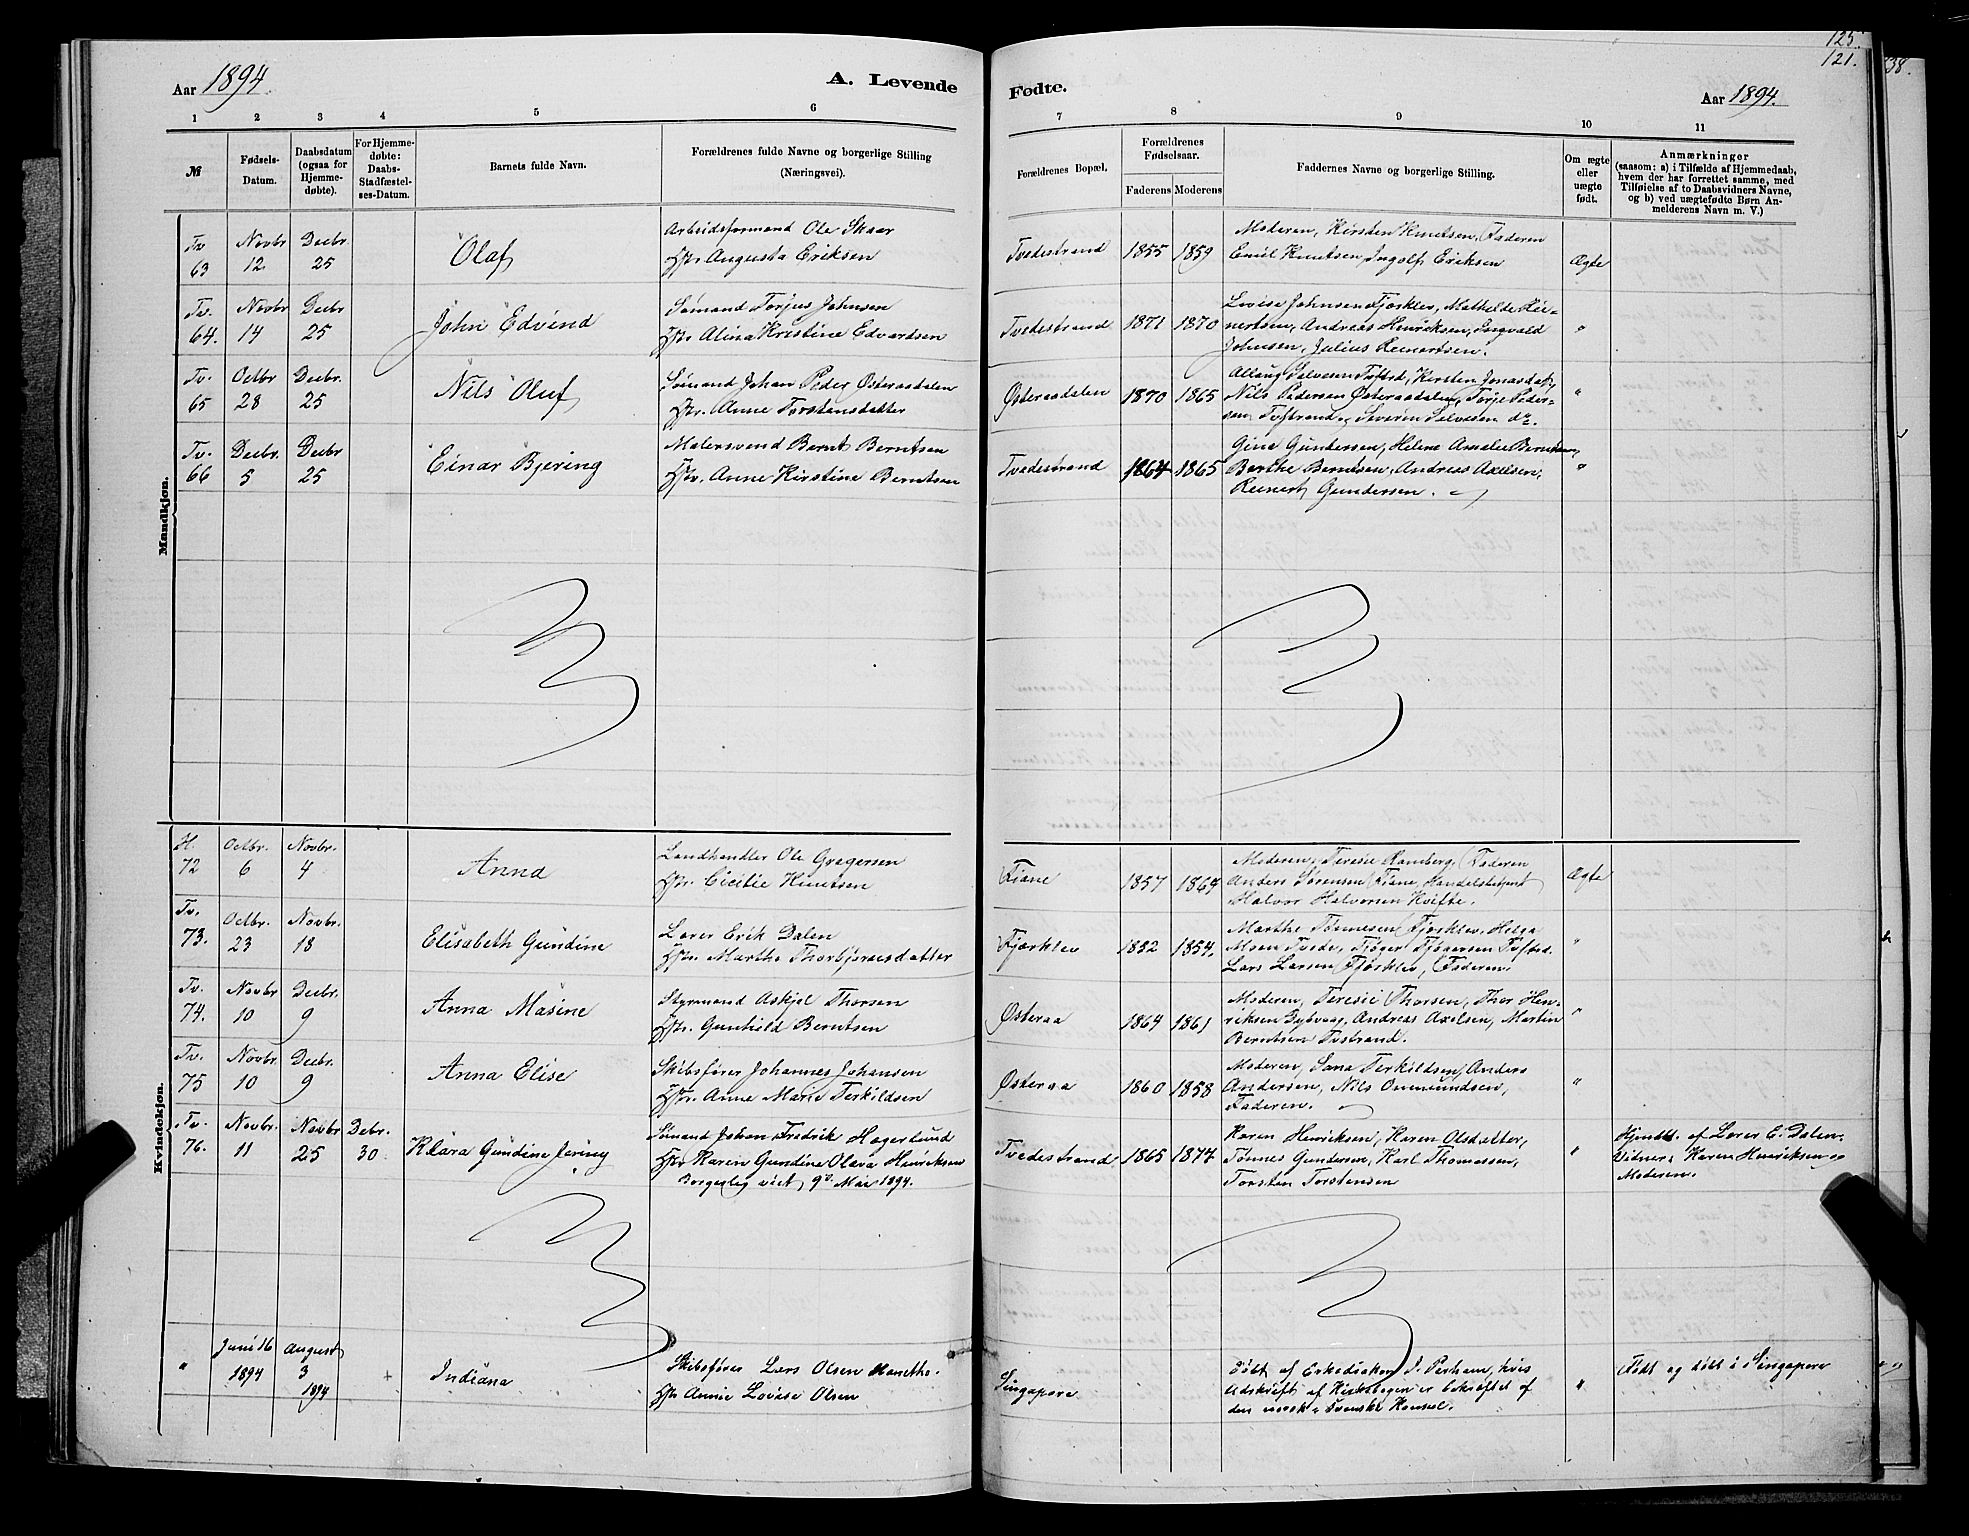 125.
121.
38.
Aar 1894.
A. Levende
Fødte.
Aar 1894.
1 2 3 4 5 6 7 8 9 10 11
№
Fødsels-
Datum.
Daabsdatum
(ogsaa for
Hjemme-
døbte).
For Hjemme-
døbte:
Daabs-
Stadfæstel-
ses-Datum.
Barnets fulde Navn.
Forældrenes fulde Navne og borgerlige Stilling
(Næringsvei).
Forældrenes Bopæl.
Forældrenes
Fødselsaar.
Faderens Moderens
Faddernes Navne og borgerlige Stilling.
Om ægte
eller
uægte
født.
Anmærkninger
(saasom: a) i Tilfælde af Hjemmedaab,
hvem der har forrettet samme, med
Tilføielse af to Daabsvidners Navne,
og b) ved uægtefødte Børn An-
melderens Navn m. V.)
Mandkjøn.
Tv
63
Novbr
12
Decbr.
25
Olaf
Arbeidsformand Ole Skaar
Hstr. Augusta Eriksen
Tvedestrand
1855 1859
Moderen, Kirsten Knutsen, Faderen
Emil Knutsen, Ingolf Eriksen
Ægte
Tv.
64.
Novbr
14
Decbr
25
John Edvind
Sømand Torjus Johnsen
Hstr. Alina Kristine Edvardsen
Tvedestrand
1871 1870
Lovise Johnsen Fjærklev, Mathilde Rei-
nertsen, Andreas Henriksen, Ingvald
Johnsen, Julius Reinertsen.
"
Tv.
65
Octbr
28
Decbr.
25
Nils Oluf
Sømand Johan Peder Østeraadalen
Hstr. Anne Torstensdatter
Østeraadalen
1870 1865
Aslaug Selvesen Tvstrd, Kirsten Jonasdat,
Nils Pedersen Østeraadalen, Torje Peder-
sen Tvstrand, Severin Selvesen do.
"
Tv.
66
Decbr.
5
Decbr
25
Einar Bjering
Malersvend Bernt Berntsen
Hstr. Anne Kirstine Berntsen
Tvedestrand
1864 1865
Gina Gundersen, Helene Amalie Berntsen,
Berthe Berntsen, Andreas Axelsen,
Reinert Gundersen.
"
Kvindekjøn.
H.
72
Octbr.
6
Novbr.
4
Anna
Landhandler Ole Gregersen
Hstr. Cicilie Knutsen
Fiane
1857 1864
Moderen, Teresie Ramberg, Faderen
Anders Sørensen Fiane, Handelsbetjent
Halvor Halvorsen Kvifte.
Ægte
Tv.
73.
Octbr.
23
Novbr.
18
Elisabeth Gundine
Lærer Erik Dalen
Hstr. Marthe Thorbjørnsdatter
Fjærklev
1832 1854.
Marthe Tønnesen Fjærklev, Helga
Moen Tvede, Tjøger Tjøgersen Tvstrd.
Lars Larsen Fjærklev, Faderen.
"
Tv.
74.
Novbr
10
Decbr.
9
Anna Masine
Styrmand Askjel Thorsen
Hstr. Gunhild Berntsen
Østeraa
1864 1861
Moderen, Teresie Thorsen, Thor Hen-
riksen Dybvaag, Andreas Axelsen, Martin
Berntsen Tvstrand.
"
Tv.
75
Novbr
10
Decbr.
9
Anna Elise
Skibsfører Johannes Johansen
Hstr. Anne Marie Terkildsen
Østeraa
1860 1858
Moderen, Sana Terkildsen, Anders
Andersen, Nils Onmundsen,
Faderen.
"
Tv.
76.
Novbr.
11
Novbr
25
Debr.
30
Klara Gundine Jæring
Sømand Johan Fredrik Hagerlund
Hstr Karen Gundine Olava Henriksen
Borgerlig viet 9de Mai 1894.
Tvedestrand
1865 1877
Karen Henriksen, Karen Olsdatter,
Tønnes Gundersen, Karl Thomassen,
Torsten Torstensen
"
Hjemdt. af Lærer E. Dalen.
Vidner: Karen Henriksen og
Moderen.
"
Juni 16
1894
August
3
1894
Indiana
Skibsfører Lars Olsen
Hstr Annie Lovise Olsen
Singapore
Døbt af Erkediakon J. Perham, hvis
Udskrift af Kirkebogen er bekræftet af
den norsk-svenske Konsul.
"
Født og døbt i Singapore